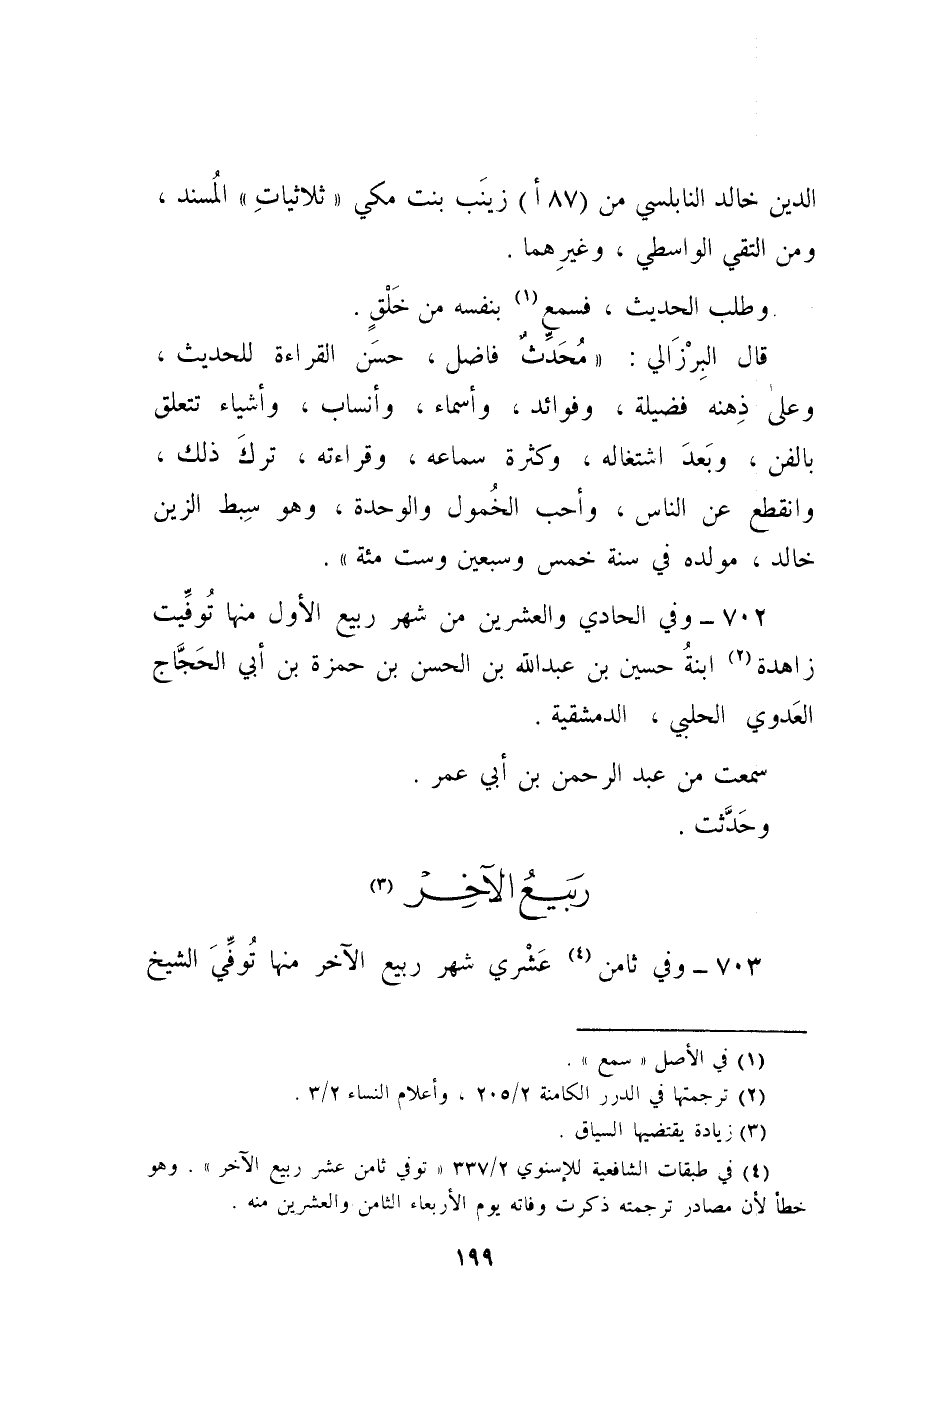 الدين خالد النابلسي من (٨٧ أ) زينَب بنت مكي « ثلاثياتِ » المُسند ،
ومن التقي الواسطي ، وغيرِهما .
وطلب الحديث ، فسمع(١) بنفسه من خَلْقٍ .
قال البِرْزَالي : « مُحَدِّثٌ فاضل ، حسَن القراءة للحديث ،
وعلىٰ ذِهنه فضيلة ، وفوائد ، وأسماء ، وأنساب ، وأشياء تتعلق
بالفن ، وبَعدَ اشتغاله ، وكثرة سماعه ، وقراءته ، تركَ ذلك ،
وانقطع عن الناس ، وأحب الخُمول والوحدة ، وهو سِبط الزين
خالد ، مولده في سنة خمس وسبعين وست مئة » .
٧٠٢ ـ وفي الحادي والعشرين من شهر ربيع الأول منها تُوفِّيت
زاهدة(٢) ابنةُ حسين بن عبدالله بن الحسن بن حمزة بن أبي الحَجَّاج
العَدوي الحلبي ، الدمشقية .
سمعت من عبد الرحمن بن أبي عمر .
وحَدَّثت .
رَبيعُ الآخِر (٣)
٧٠٣ ـ وفي ثامن(٤) عَشْري شهر ربيع الآخر منها تُوفِّيَ الشيخ
(١) في الأصل « سمع » .
(٢) ترجمتها في الدرر الكامنة ٢٠٥/٢ ، وأعلام النساء ٣/٢ .
(٣) زيادة يقتضيها السياق .
(٤) في طبقات الشافعية للإسنوي ٣٣٧/٢ « توفي ثامن عشر ربيع الآخر » . وهو
خطأ لأن مصادر ترجمته ذكرت وفاته يوم الأربعاء الثامن والعشرين منه .
١٩٩